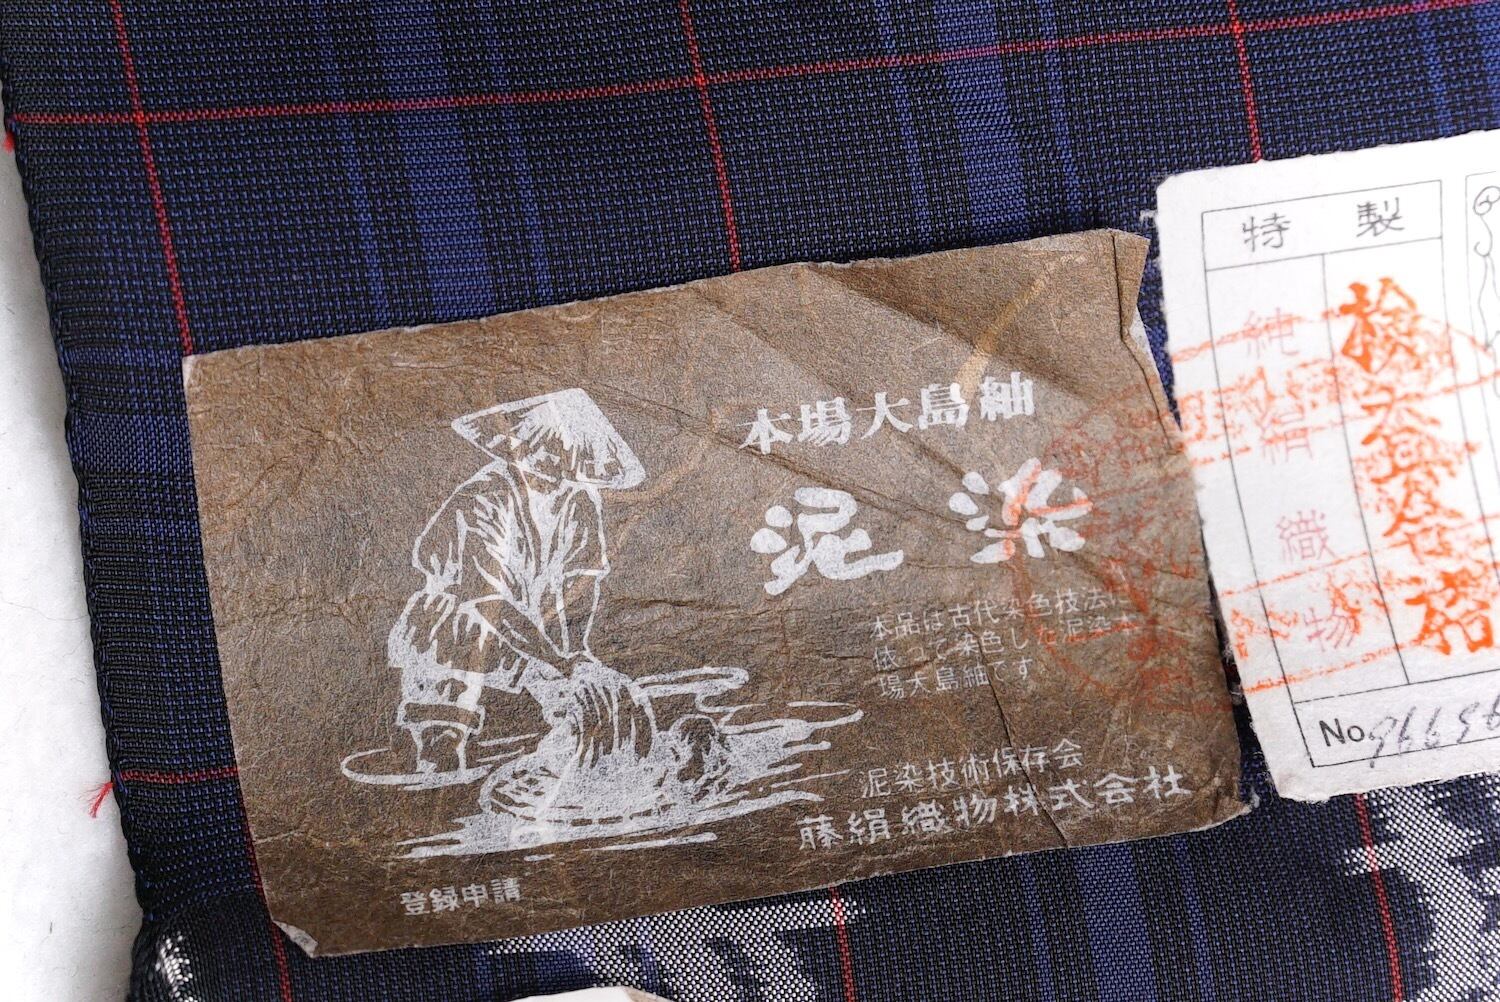 本場大島紬
泥染
本品は古代染色技法に
依って染色した泥染本
場大島紬です
泥染技術保存会
藤絹織物株式会社
登録申請
特製
純絹織物
検
No.